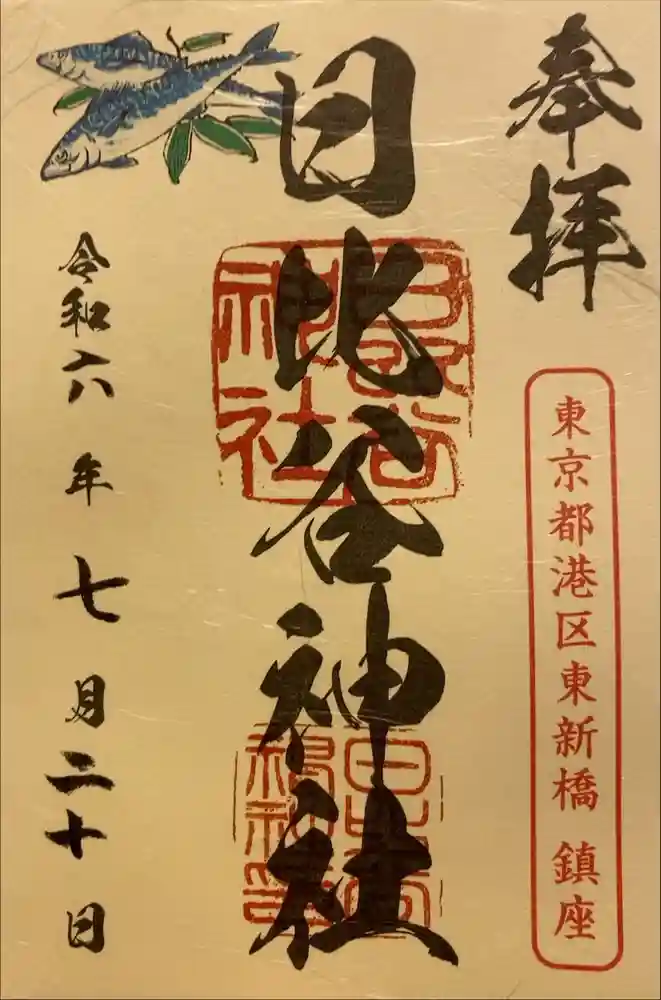 奉拝
東京都港区東新橋 鎮座
日比谷神社
日比谷神社
令和六年七月二十日